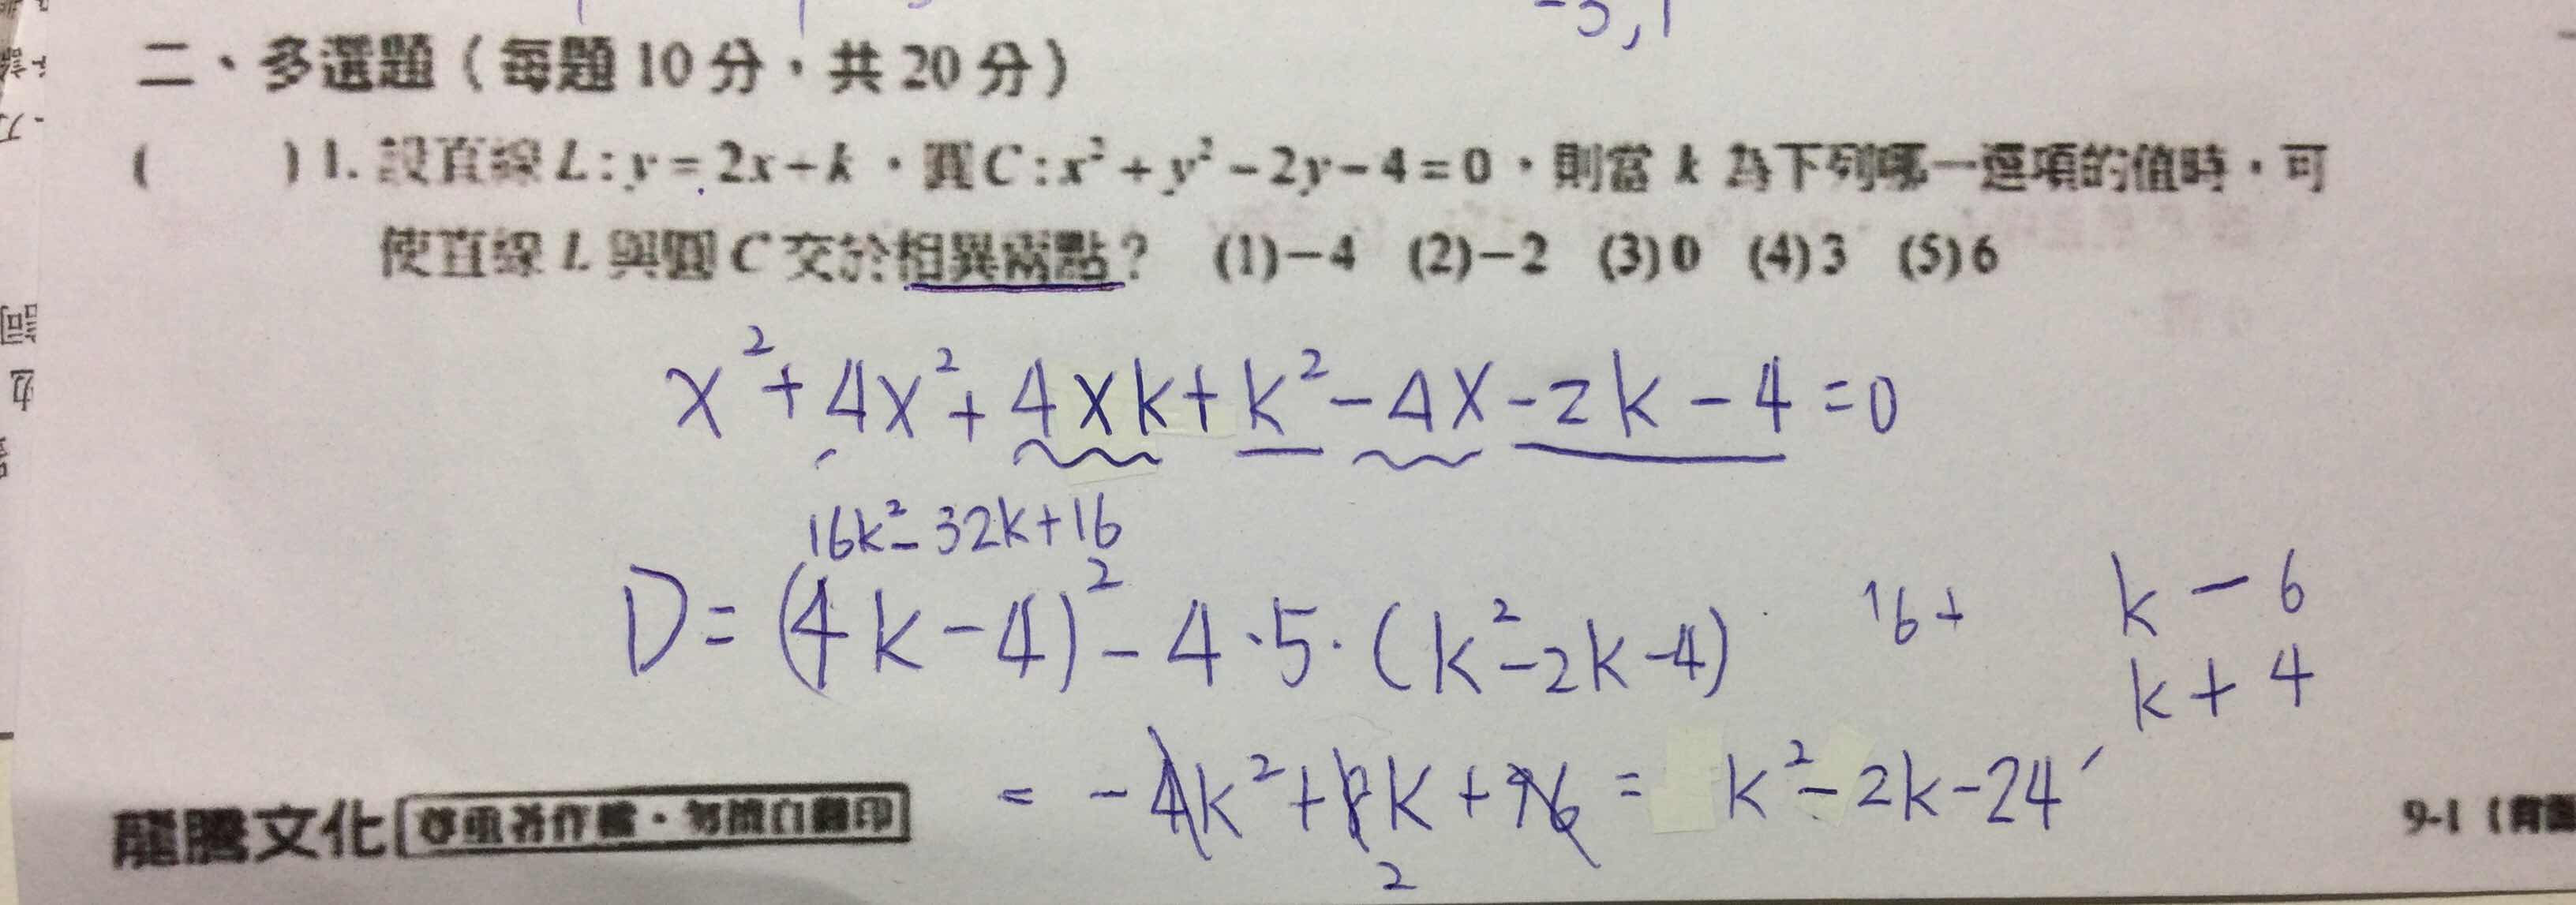 -3,1
二、多選題(每題10分,共20分)
( )1. 設直線L:y=2x+k,圓C:x²+y²-2y-4=0,則當k為下列哪一選項的值時,可
使直線L與圓C交於相異兩點? (1)-4 (2)-2 (3)0 (4)3 (5)6
x²+4x²+4xk+k²-4x-2k-4=0
16k²-32k+16
D=(4k-4)²-4·5·(k²-2k-4) 16+ k-6
k+4
=-4k²+8k+96= k²-2k-24
2
龍騰文化 尊重著作權・勿擅自翻印
9-1(背面